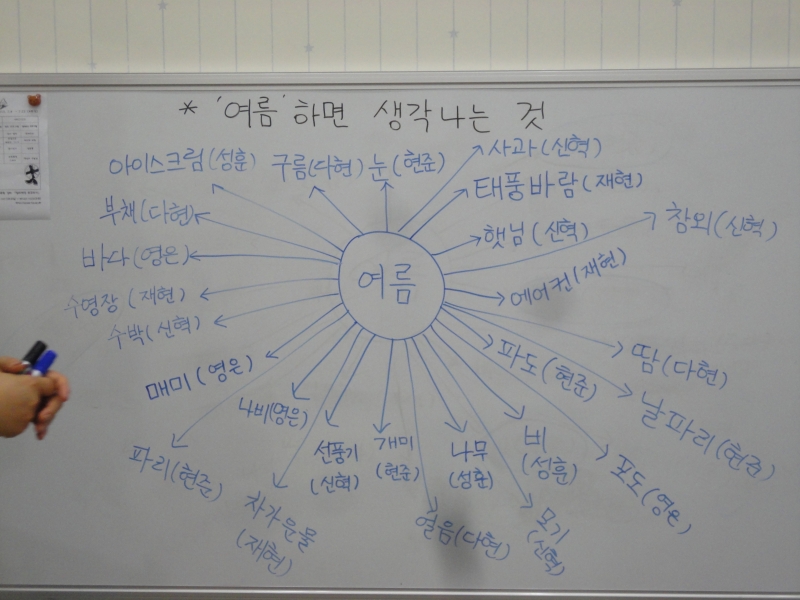 * '여름' 하면 생각나는 것
아이스크림(성훈)
구름(다현)
눈(현준)
사과(신혁)
태풍바람(재현)
부채(다현)
햇님(신혁)
참외(신혁)
바다(영은)
여름
에어컨(재현)
수영장(재현)
수박(신혁)
매미(영은)
파도(현준)
땀(다현)
나비(영은)
날파리(현준)
파리(현준)
선풍기
(신혁)
개미
(현준)
나무
(성훈)
비
(성훈)
포도(영은)
차가운물
(재현)
얼음(다현)
모기
(신혁)